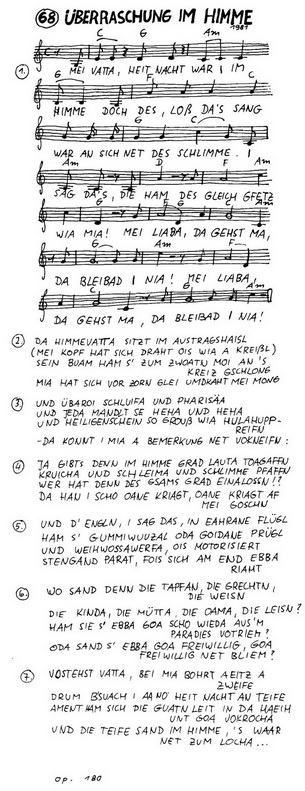 68 ÜBERRASCHUNG IM HIMME
1981
C G Am
1. MEI VATTA, HEIT NACHT WAR I IM
G F C
HIMME DOCH DES, LOß DA'S SANG
G C
WAR AN SICH NET DES SCHLIMME. I
Am D F Am
SAG DA'S, DIE HAM DES GLEICH GFETZ
G C Am
WIA MIA! MEI LIABA, DA GEHST MA,
G Am F
DA BLEIBAD I NIA! MEI LIABA,
C G Am
DA GEHST MA, DA BLEIBAD I NIA!
2. DA HIMMEVATTA SITZT IM AUSTRAGSHAISL
(MEI KOPF HAT SICH DRAHT OIS WIA A KREIßL)
SEIN BUAM HAM S' ZUM ZWOATN MOI AN 'S
KREIZ GSCHLONG
MIA HAT SICH VOR ZORN GLEI UMDRAHT MEI MONG
3. UND ÜBAROI SCHLUIFA UND PHARISÄA
UND JEDA MANDLT SE HEHA UND HEHA
UND HEILIGENSCHEIN SO GROUß WIA HULAHUPP-
REIFN
-DA KONNT I MIA A BEMERKUNG NET VOKNEIFN:
4. JA GIBTS DENN IM HIMME GRAD LAUTA TOAGAFFN
KRUICHA UND SCHLEIMA UND SCHLIMME PFAFFN
WER HAT DENN DES GSAMS GRAD EINALOSSN!?
DA HAN I SCHO OANE KRIAGT, OANE KRIAGT AF
MEI GOSCHN
5. UND D' ENGLN, I SAG DAS, IN EAHRANE FLÜGL
HAM S' GUMMIWUUZAL ODA GOIDANE PRÜGL
UND WEIHWOSSAWERFA, OIS MOTORISIERT
STENGAND PARAT, FOIS SICH AM END EBBA
RIAHT
6. WO SAND DENN DIE TAPFAN, DIE GRECHTN,
DIE WEISN
DIE KINDA, DIE MÜTTA, DIE OAMA, DIE LEISN?
HAM SIE S' EBBA GOA SCHO WIEDA AUS'M
PARADIES VOTRIEM?
ODA SAND S' EBBA GOA FREIWILLIG, GOA
FREIWILLIG NET BLIEM?
7. VOSTEHST VATTA, BEI MIA BOHRT AEITZ A
ZWEIFE
DRUM BSUACH I AA NO' HEIT NACHT AN TEIFE
AMENT HAM SICH DIE GUATN LEIT IN DA HAEIH
UNT GOA VOKROCHA
UND DIE TEIFE SAND IM HIMME, 'S WAAR
NET ZUM LOCHA...
OP. 180